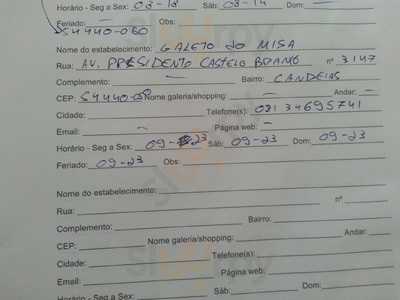 Horário - Seg a Sex: 03-18 Sáb: 03-14 Dom:
Feriado: – Obs:
54440-060
Nome do estabelecimento: GALETO do MISA
Rua: AV. PRESIDENTO CASTELO BRANNO nº 3147
Complemento: – Bairro: CANDEIAS
CEP: 54440-050 Nome galeria/shopping: – Andar: –
Cidade: Telefone(s): 081 34695741
Email: – Página web: –
Horário - Seg a Sex: 09-23 Sáb: 09-23 Dom: 09-23
Feriado: 09-23 Obs:
Nome do estabelecimento:
Rua: nº
Complemento: Bairro:
CEP: Nome galeria/shopping: Andar:
Cidade: Telefone(s):
Email: Página web:
Horário - Seg a Sex: Sáb: Dom: